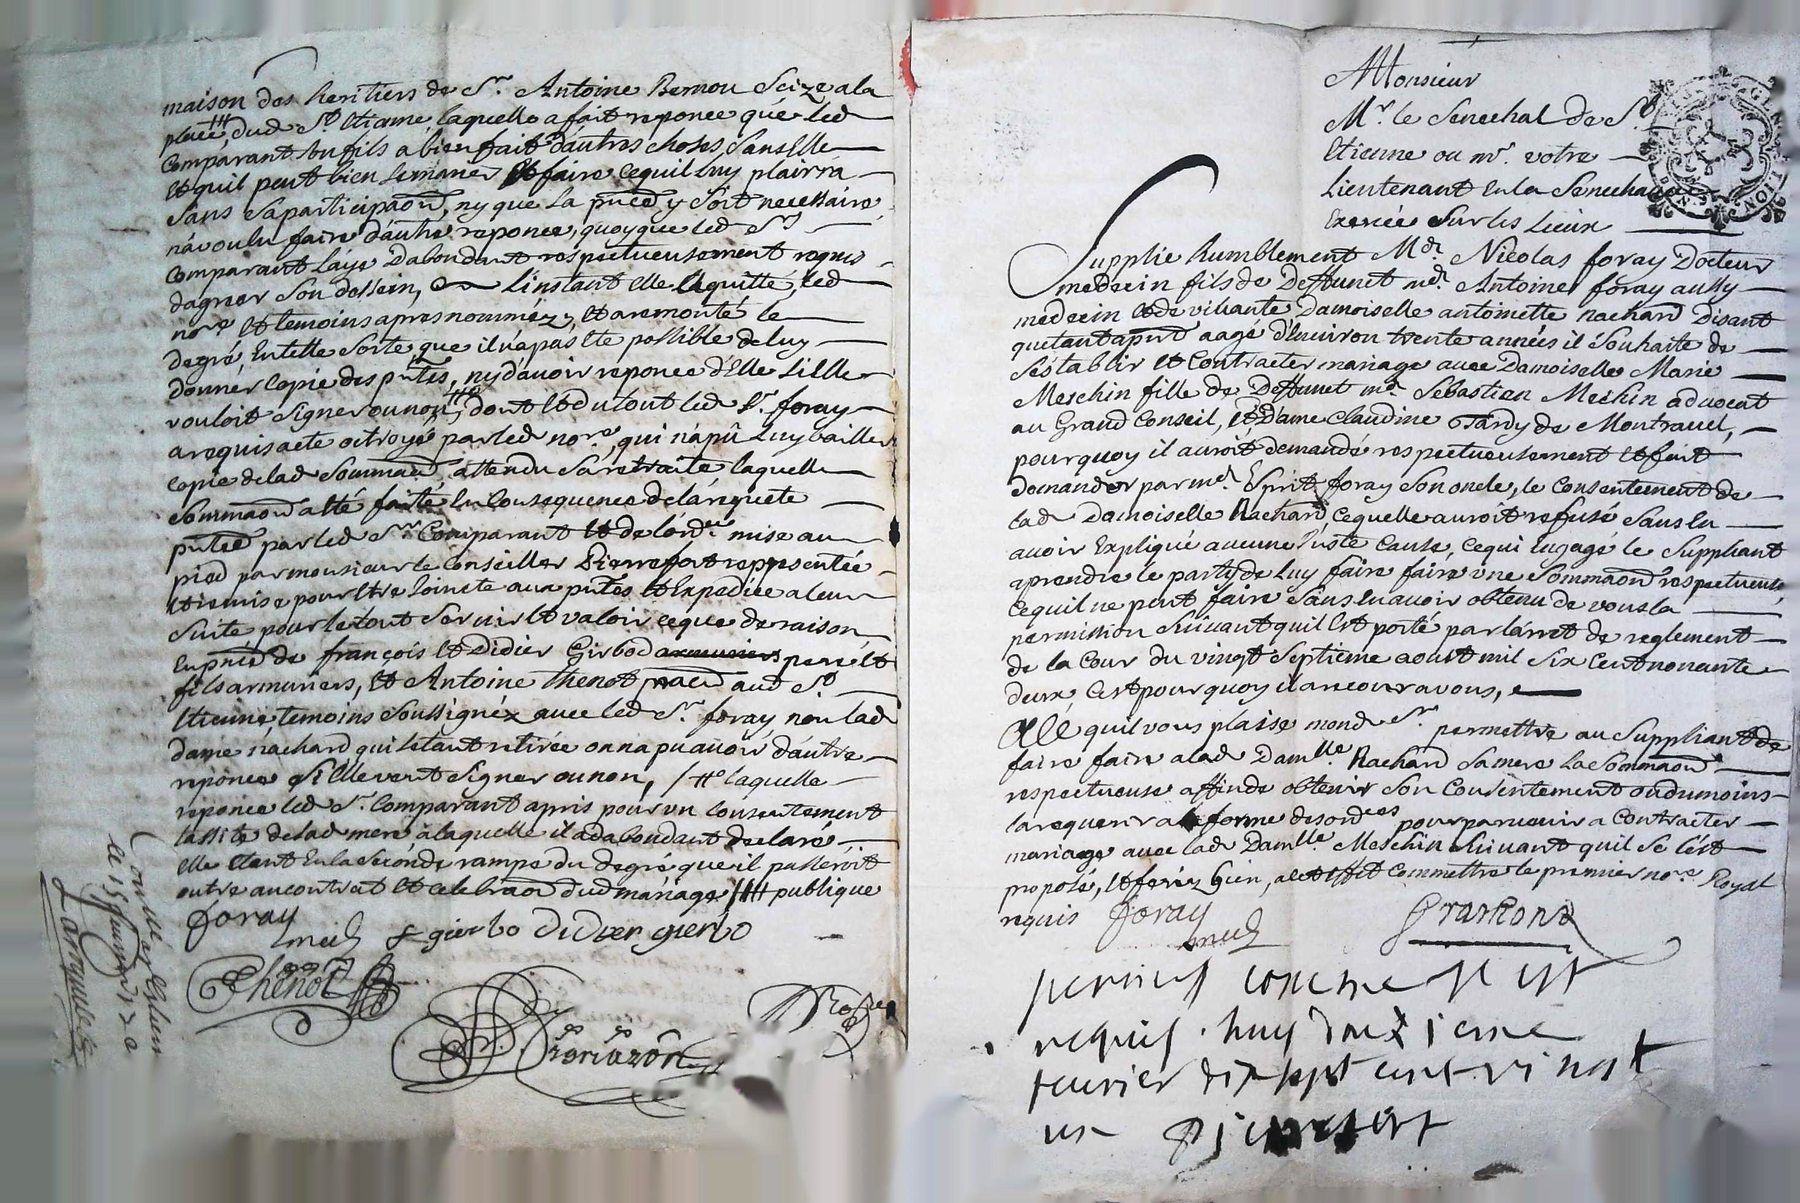 maison des heritiers de Sr. Antoine Bernou Scize a la
place, dud St. Etienne, laquelle a fait reponce que led
Comparant son fils a bien fait dautres choses sans Elle
Et quil peut bien se marier Et faire ce quil luy plairra
sans sa participaon, ny que la pnce y soit necessaire
na voulu faire dautre reponce, quoyque led Sr.
Comparant laye Dabondant respectueusement requis
dagreer son dessein, linstant elle a quitté led
nore. Et temoins apres nommez, Et a remonté le
degré, En telle sorte que il na pas Eté possible de luy
donner Copie des pntes, ny davoir reponce d'Elle si Elle
vouloit signer ou non, dont Et du tout led Sr. foray
a requis acte octroyé par led nore. qui n'a pû luy bailler
copie de lad Sommaon, attendu sa retraitte laquelle
Sommaon a Eté faite En Consequence de la requete
pntée par led Sr. Comparant Et de lordce mise au
pied par monsieur le Conseiller Pierrefort representée
Et remise pour Etre Jointe aux pntes Et Expediée a leur
suite pour le tout servir Et valoir ce que de raison
En pnce de françois Et Didier Girbod armuriers pere Et
fils armuriers, Et Antoine Thenot aud St.
Etienne temoins soussignéz avec led Sr. foray non lad
dame rachard qui s'etant retirée on na pu avoir dautre
reponce si Elle veut signer ou non, /# laquelle
reponce led Sr. Comparant a pris pour un Consentement
tassite de lad mere a laquelle il a dabondant declaré
Elle Etant En la seconde rampe du degré que il passeroit
outre au contrat Et celebraon dud mariage /## publique
foray
med
f gierbo Didier gierbo
Thenot
Conllé a St. Etienne
le 15 feuvrier 1720
Monsieur
Mr. le Senechal de St.
Etienne ou mr. votre
Lieutenant En la Senechaucée
Exercée sur les Lieux
GENERATION
Supplie humblement Mr. Nicolas foray Docteur
medecin fils de Deffunct mr. Antoine foray aussy
medecin Et de vivante Damoiselle antoinette rachard Disant
quetant apnt aagé d'Environ trente années il souhaite de
s'établir Et Contracter mariage avec Damoiselle Marie
Meschin fille de Deffunct mr. Sebastien Mechin advocat
au Grand Conseil, Et Dame Claudine Tardy de Montravel,
pourquoy il auroit demandé respectueusement Et fait
demander par mr. Esprit foray son oncle, le Consentement de
lad Damoiselle Rachard, ce quelle auroit refusé sans En
avoir Expliqué aucune Juste Cause, ce qui Engage le Suppliant
a prendre le party de luy faire faire une Sommaon respectueuse,
ce quil ne peut faire sans En avoir obtenu de vous la
permission suivant quil Est porté par l'arret de reglement
de la Cour du vingt Septieme aoust mil six Cent nonante
deux, C'est pourquoy il a recour a vous,
Alle quil vous plaise mond Sr. permettre au Suppliant de
faire faire a lad Damlle Rachard sa mere la Sommaon
respectueuse affin de obtenir son Consentement ou du moins
la requerir a la forme des ordces pour parvenir a Contracter
mariage avec lad Damlle Meschin suivant quil se l'est
proposé, Et ferez bien, a cet Effet Commettre le premier nore. Royal
requis foray
med
permis comme il est
requis. huy douzieme
feuvrier dix sept cent vingt
un Pierrefort